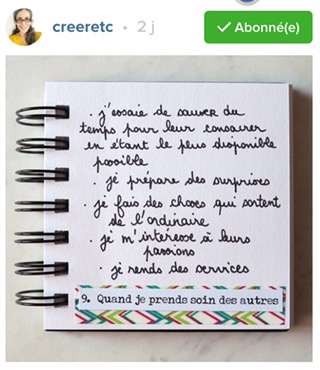 creeretc • 2 j
✓ Abonné(e)
· j'essaie de sauver du
temps pour leur consacrer
en étant le plus disponible
possible
· je prépare des surprises
· je fais des choses qui sortent
de l'ordinaire
· je m'intéresse à leurs
passions
· je rends des services
9. Quand je prends soin des autres